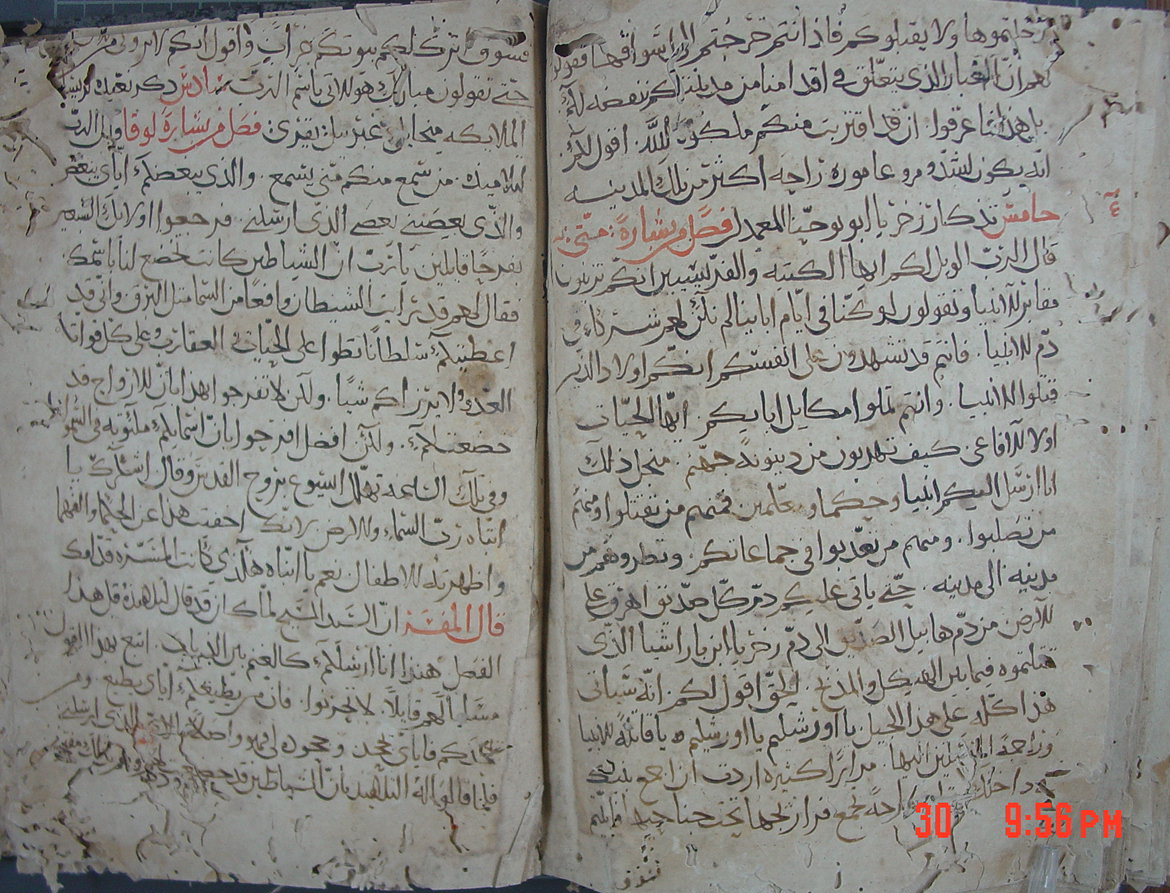 دخلتموها ولا يقبلوكم فاذا انتم خرجتم الى اسواقها فقولوا
لهم ان الغبار الذي يتعلق في اقدامنا من مدينتكم ننفضه لكم
بل هذا اعرفوا ان قد اقتربت منكم ملكوت الله اقول لكم
انه يكون لسدوم وعاموره راحه اكثر من تلك المدينه
خامس تذكار زخريا ابو يوحنا المعمدان فصل من بشارة متى
قال الرب الويل لكم ايها الكتبه والفريسيين انكم تزينون
مقابر الانبيا وتقولون لو كنا في ايام ابائنا لم نكن لهم شركاء في
دم الانبيا فانتم قد تشهدون على انفسكم انكم اولاد الذين
قتلوا الانبيا وانتم تملوا مكاييل ابايكم ايها الحيات
اولاد الافاعي كيف تهربون من دينونة جهنم من اجل ذلك
انا ارسل اليكم انبيا وحكما ومعلمين فمنهم من تقتلوا ومنهم
من تصلبوا ومنهم من تعذبوا في جماعاتكم وتطردوهم من
مدينه الى مدينه حتى ياتي عليكم دم كل صديق اهرق على
الارض من دم هابيل الصديق الى دم زخريا ابن باراشيا الذي
قتلتموه فيما بين الهيكل والمذبح الحق اقول لكم انه سياتي
هذا كله على هذا الجيل يا اورشليم يا اورشليم يا قاتلة الانبيا
وراجمة المرسلين اليها مرارا كثيره اردت ان اجمع بنيك
الدجاجة تجمع فراريجها تحت جناحيها فابيتم
فسوف اترك لكم بيوتكم خراب واقول انكم لا تروني من
حتى تقولون مبارك هو الاتي باسم الرب سادس ذكر تعييد لرييس
الملايكه ميخاييل فصل من بشارة لوقا وقال الرب
لتلاميذه من سمع منكم مني يسمع والذي يبغضكم اياي يبغض
والذي يعصيني يعصي الذي ارسلني فرجعوا اولايك السبعين
بفرح قايلين يا رب ان الشياطين كانت تخضع لنا باسمك
فقال لهم قد رايت الشيطان واقعا من السما مثل البرق واني قد
اعطيتكم سلطانا تطوا على الحيات والعقارب وعلى كل قوات
العدو لا يضركم شيا ولكن لا تفرحوا بهذا بان الارواح قد
خضعت لكم ولكن افضل افرحوا بان اسمايكم مكتوبه في السما
وفي تلك الساعه تهلل ايسوع بروح القدس وقال اشكرك يا
ابتاه رب السماء والارض لانك اخفيت هذا عن الحكما والفهما
واظهرته للاطفال نعم يا ابتاه هكذي كانت المسره قدامك
قال المفسر ان السيد المسيح كان قد قال لتلاميذه قبل هذا
الفصل هنذا انا ارسلكم كالغنم بين الذياب اتبع بهذا القول
قايلا لا تحزنوا فان من يطيعكم اياي يطيع ومن
يجحدكم فاياي يجحد
فلما قالوا له التلاميذ بان الشياطين قد
30 9:56 PM